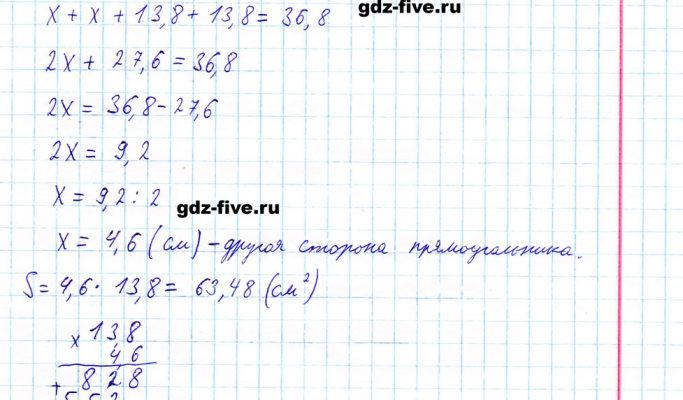 gdz-five.ru
x + x + 13,8 + 13,8 = 36,8
2x + 27,6 = 36,8
2x = 36,8 - 27,6
2x = 9,2
x = 9,2 : 2
gdz-five.ru
x = 4,6 (см) - другая сторона прямоугольника.
S = 4,6 · 13,8 = 63,48 (см²)
x 13,8
4,6
+ 828